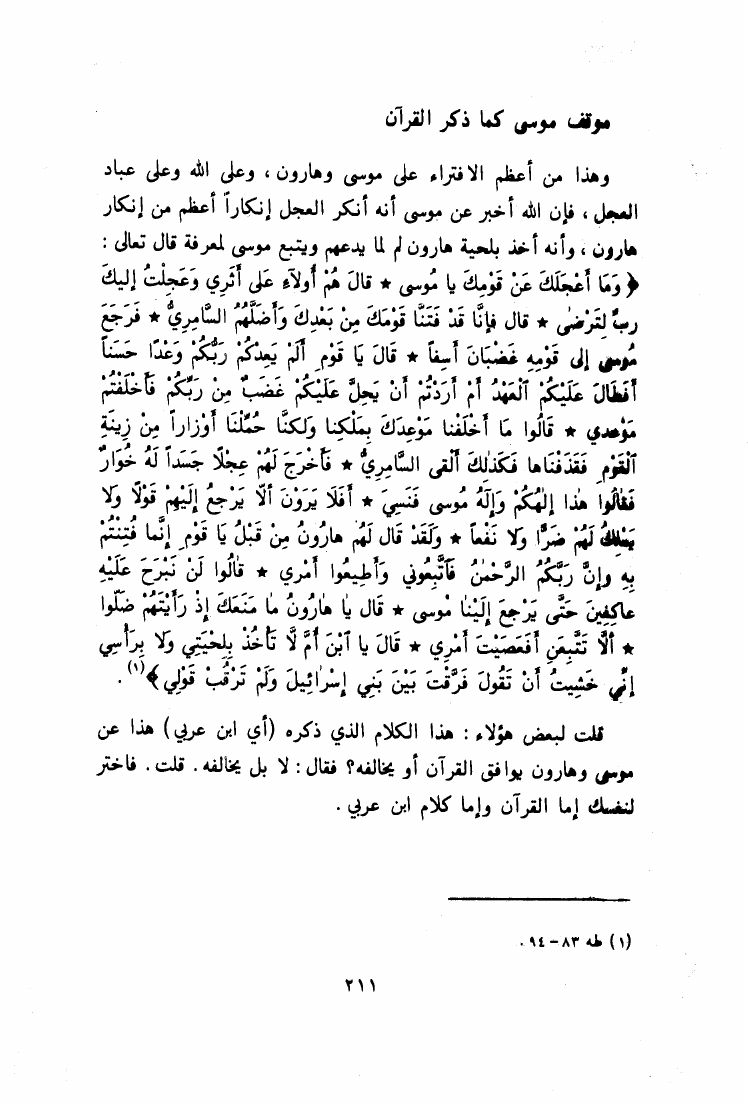 موقف موسى كما ذكر القرآن
وهذا من أعظم الافتراء على موسى وهارون ، وعلى الله وعلى عباد
العجل ، فإن الله أخبر عن موسى أنه أنكر العجل إنكاراً أعظم من إنكار
هارون ، وأنه أخذ بلحية هارون لم لما يدعهم ويتبع موسى لمعرفة قال تعالى :
﴿ وَمَا أَعْجَلَكَ عَنْ قَوْمِكَ يا مُوسى * قالَ هُمْ أُولآءِ عَلى أَثَرِي وَعَجِلْتُ إليكَ
ربِّ لِتَرْضٰى * قال فإِنَّا قَدْ فَتَنَّا قَوْمَكَ مِنْ بَعْدِكَ وَأَضَلَّهُمُ السَّامِرِيُّ * فَرَجَعَ
مُوسىٰ إلى قَوْمِهِ غَضْبَانَ أَسِفاً * قَالَ يَا قَوْمِ أَلَمْ يَعِدْكُمْ رَبُّكُمْ وَعْدًا حَسَناً
أَفَطَالَ عَلَيْكُمُ ٱلْعَهْدُ أَمْ أَرَدْتُمْ أَنْ يَحِلَّ عَلَيْكُمْ غَضَبٌ مِنْ رَبِّكُمْ فَأَخْلَفْتُمْ
مَوْعدي * قَالُوا مَا أَخْلَفْنا مَوْعِدَكَ بِمَلْكِنا وَلكنَّا حُمِّلْنَا أَوْزاراً مِنْ زِينَةِ
ٱلْقَوْمِ فَقَذَفْنَاها فَكَذلكَ أَلْقى السَّامِريُّ * فَأَخْرَجَ لَهُمْ عِجْلًا جَسَداً لَهُ خُوَارٌ
فَقَالُوا هٰذا إلٰهُكُمْ وَإِلَهُ مُوسى فَنَسِيَ * أَفَلَا يَرَوْنَ أَلاّ يَرْجعُ إلَيْهِمْ قَوْلًا وَلا
يَمْلكُ لَهُمْ ضَرًّا ولا نَفْعاً * وَلَقَدْ قال لَهُم هارُونُ مِنْ قَبْلُ يَا قَوْمِ إِنَّما فُتِنْتُمْ
بِهِ وإِنَّ رَبَّكُمُ الرَّحْمٰنُ فَٱتَّبِعُوني وَأَطِيعُوا أَمْري * قالُوا لَنْ نَبْرَحَ عَلَيْهِ
عاكِفِينَ حَتَّى يَرْجِعَ إلَيْنَا مُوسى * قال يا هَارُونُ مَا مَنَعَكَ إذ رَأَيْتَهُمْ ضَلّوا
* أَلاَّ تَتَّبِعَنِ أَفَعَصَيْتَ أَمْرِي * قَالَ يا ٱبْنَ أُمَّ لَا تَأخُذْ بِلِحْيَتِي وَلا بِرَأْسِي
إِنِّي خَشِيتُ أَنْ تَقُولَ فَرَّقْتَ بَيْنَ بَنِي إِسْرَائِيلَ وَلَمْ تَرْقُبْ قَوْلِي ﴾(١) .
قلت لبعض هؤلاء : هذا الكلام الذي ذكره (أي ابن عربي) هذا عن
موسى وهارون يوافق القرآن أو يخالفه؟ فقال : لا بل يخالفه . قلت . فاختر
لنفسك إما القرآن وإما كلام ابن عربي .
(١) طه ٨٣ - ٩٤ .
٢١١